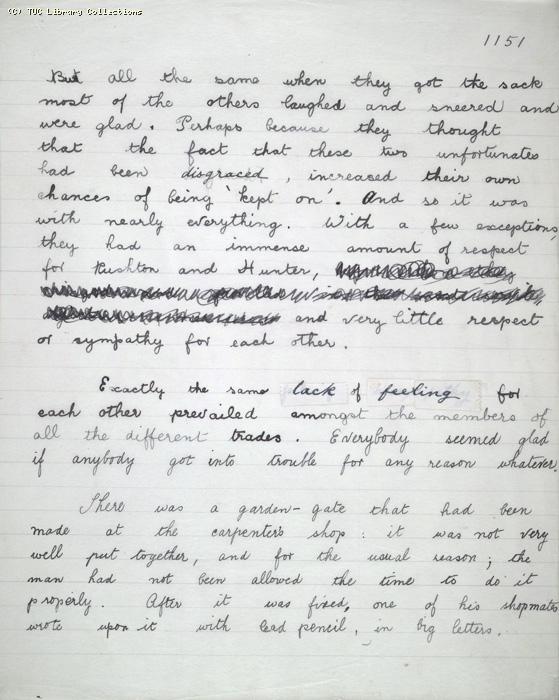 (C) TUC Library Collections
1151
But all the same when they got the sack
most of the others laughed and sneered and
were glad. Perhaps because they thought
that the fact that these two unfortunates
had been disgraced, increased their own
chances of being 'kept on'. And so it was
with nearly everything. With a few exceptions
they had an immense amount of respect
for Rushton and Hunter,
and very little respect
or sympathy for each other.
Exactly the same lack of feeling for
each other prevailed amongst the members of
all the different trades. Everybody seemed glad
if anybody got into trouble for any reason whatever.
There was a garden-gate that had been
made at the carpenter's shop: it was not very
well put together, and for the usual reason; the
man had not been allowed the time to do it
properly. After it was fixed, one of his shopmates
wrote upon it with lead pencil, in big letters.